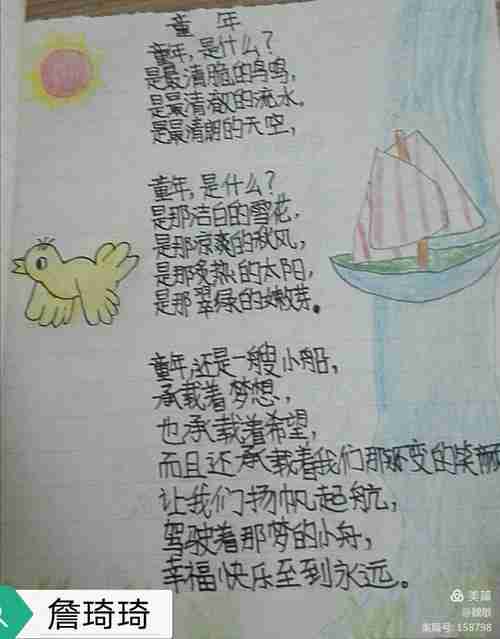 童年
童年,是什么?
是最清脆的鸟鸣,
是最清澈的流水,
是最清朗的天空,
童年,是什么?
是那洁白的雪花,
是那凉爽的秋风,
是那炙热的太阳,
是那翠绿的嫩芽。
童年,还是一艘小船,
承载着梦想,
也承载着希望,
而且还承载着我们那不变的笑颜
让我们扬帆起航,
驾驶着那梦的小舟,
幸福快乐至到永远。
詹琦琦
美篇
@魏敏
案局号: 158798